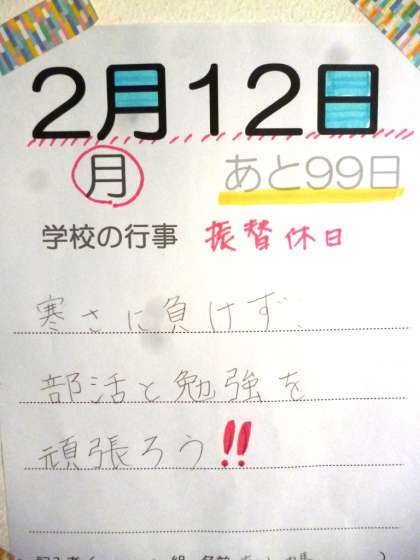 2月12日
月 あと99日
学校の行事 振替休日
寒さに負けず、
部活と勉強を
頑張ろう!!